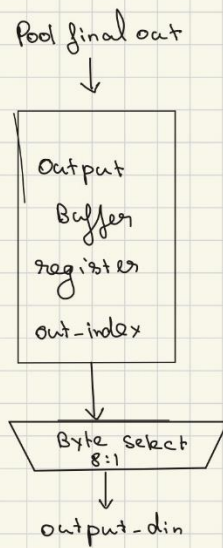 Pool final out
Output
Buffer
register
out-index
Byte Select
8:1
output-din